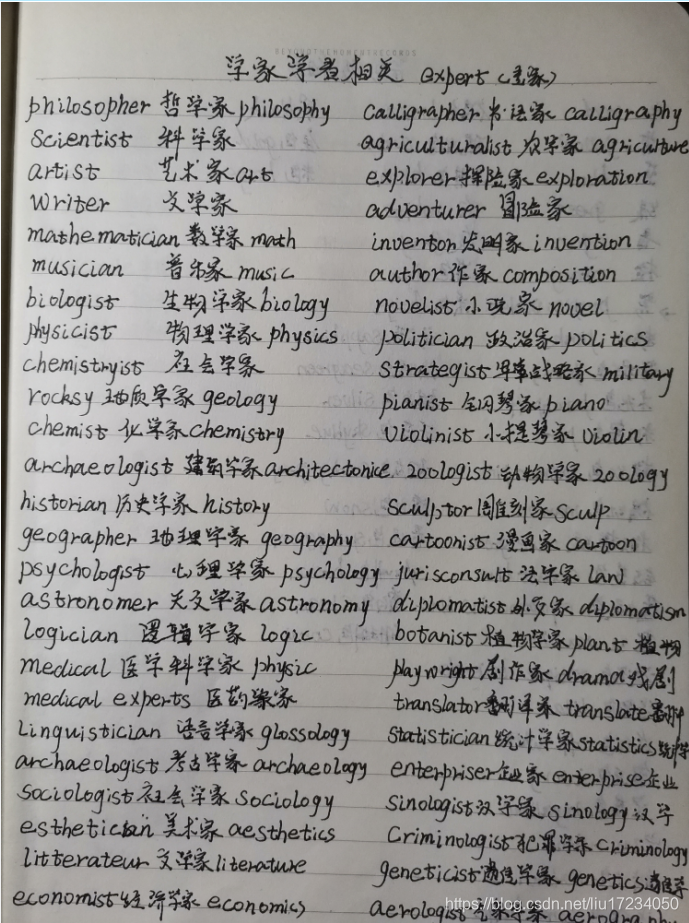 学家学者相关 expert (专家)
philosopher 哲学家 philosophy
scientist 科学家
artist 艺术家 art
writer 文学家
mathematician 数学家 math
musician 音乐家 music
biologist 生物学家 biology
physicist 物理学家 physics
chemistryist 社会学家
rocksy 地质学家 geology
chemist 化学家 chemistry
archaeologist 建筑学家 architectonice
historian 历史学家 history
geographer 地理学家 geography
psychologist 心理学家 psychology
astronomer 天文学家 astronomy
logician 逻辑学家 logic
medical 医学科学家 physic
medical experts 医药家
Linguistician 语言学家 glossology
archaeologist 考古学家 archaeology
sociologist 社会学家 sociology
esthetician 美术家 aesthetics
litterateur 文学家 literature
economist 经济学家 economics
calligrapher 书法家 calligraphy
agriculturalist 农学家 agriculture
explorer 探险家 exploration
adventurer 冒险家
inventor 发明家 invention
author 作家 composition
novelist 小说家 novel
politician 政治家 politics
strategist 军事战略家 military
pianist 钢琴家 piano
violinist 小提琴家 violin
zoologist 动物学家 zoology
sculptor 雕刻家 sculp
cartoonist 漫画家 cartoon
jurisconsult 法学家 law
diplomatist 外交家 diplomatism
botanist 植物学家 plant 植物
playwright 剧作家 drama 戏剧
translator 翻译家 translate 翻译
statistician 统计学家 statistics
enterpriser 企业家 enterprise 企业
sinologist 汉学家 sinology 汉学
Criminologist 犯罪学家 criminology
geneticist 遗传学家 genetics
aerologist
https://blog.csdn.net/liu17234050